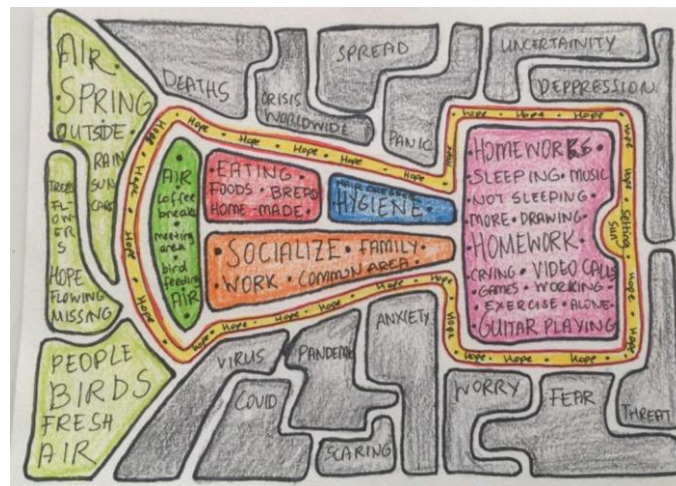 AIR
SPRING
OUTSIDE
RAIN
SUN
CARS
TREES
FLOWER
S
HOPE
FLOWING
MISSING
PEOPLE
BIRDS
FRESH
AIR
DEATHS
CRISIS
WORLDWIDE
SPREAD
PANIC
UNCERTAINITY
DEPPRESSION
Hope Hope Hope Hope Hope
AIR
coffee
breaks
meeting
area
bird
feeding
AIR
EATING
FOODS BREAD
HOME MADE
HYGIENE
SOCIALIZE FAMILY
WORK COMMON AREA
HOMEWORKS
SLEEPING MUSIC
NOT SLEEPING
MORE DRAWING
HOMEWORK
CRYING VIDEO CALLS
GAMES WORKING
EXERCISE ALONE
GUITAR PLAYING
Setting
Sun
Hope Hope Hope Hope Hope
VIRUS
COVID
PANDEMIC
SCARING
ANXIETY
WORRY
FEAR
THREAT